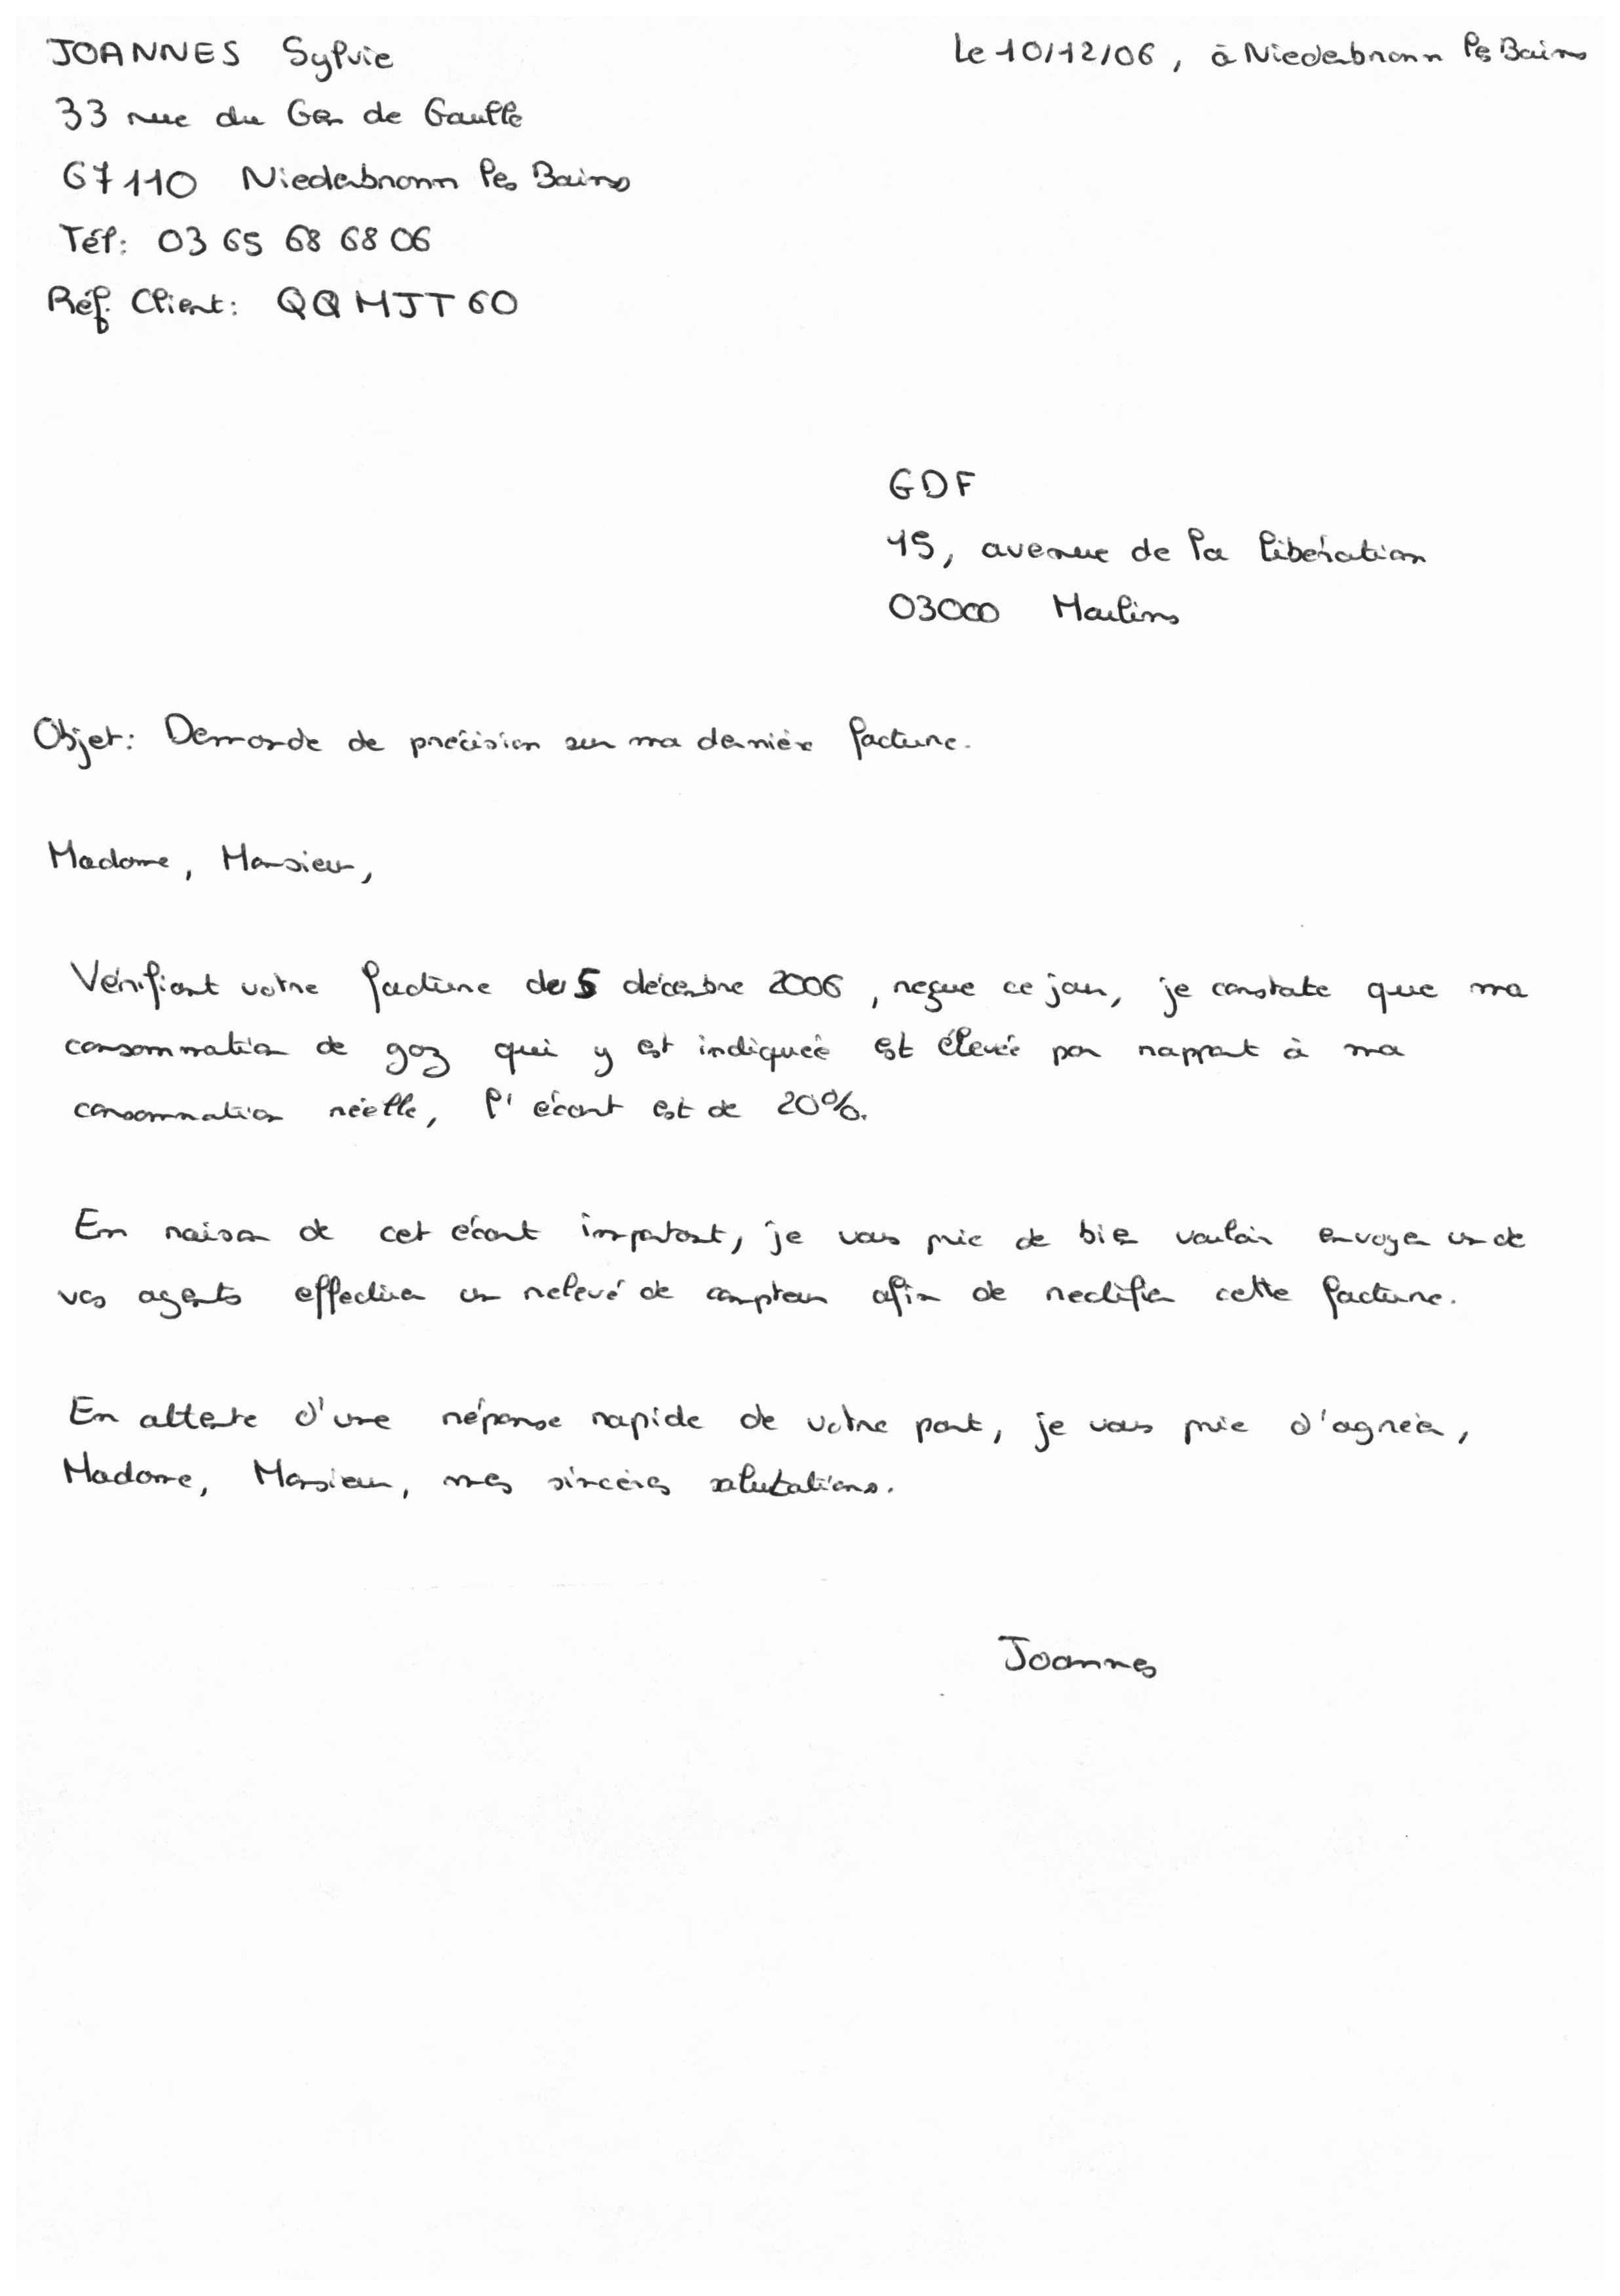 JOANNES Sylvie
Le 10/12/06, à Niederbronn les Bains
33 rue du Gen de Gaulle
67110 Niederbronn les Bains
Tél: 03 65 68 68 06
Réf. Client: QQMJT60
GDF
15, avenue de la libération
03000 Moulins
Objet: Demande de précision sur ma dernière facture.
Madame, Monsieur,
Vérifiant votre facture du 5 décembre 2006, reçue ce jour, je constate que ma
consommation de gaz qui y est indiquée est élevée par rapport à ma
consommation réelle, l'écart est de 20%.
En raison de cet écart important, je vous prie de bien vouloir envoyer un de
vos agents effectuer un relevé de compteur afin de rectifier cette facture.
En attente d'une réponse rapide de votre part, je vous prie d'agréer,
Madame, Monsieur, mes sincères salutations.
Joannes